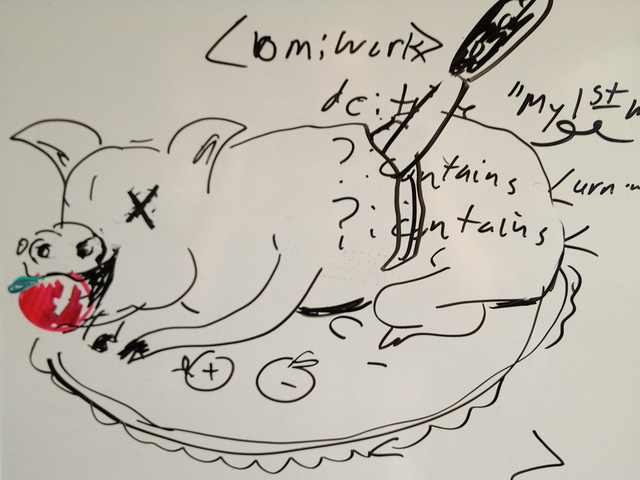 <bmiwork>
"My 1st
? :contains <urn
? :contains
+
-
>